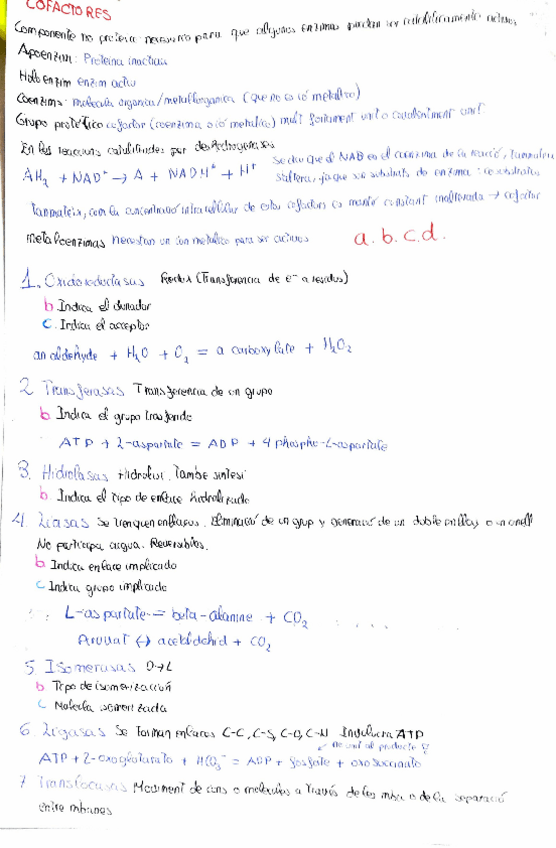 COFACTORES
Componente no proteico necesario para que algunas enzimas puedan ser cataliticamente activas
Apoenzim: Proteina inactiva
Holoenzim enzim activ
Coenzima: molecula organica/metalorganica (que no es ió metalico)
Grupo prostético cofactor (coenzima o ió metalico) molt fortament unit o covalentment unit.
En les reaccions catalitzades per deshidrogenases
AH2 + NAD+ → A + NADH + H+
Se diu que el NAD es el coenzima de la reacció,
ja que son substrats de enzima: co substrates
Tanmateix, com la concentració intracelular de estos cofactors es manté constant → cofactor
Metaloenzimas necesitan un ion metalico para ser activos
a.b.c.d.
1. Oxidoreductasas Redox (Transferencia de e- a residus)
b Indica el donador
c. Indica el acceptor
an aldehyde + H2O + O2 = a carboxylate + H2O2
2 Transferasas Transferencia de un grupo
b. Indica el grupo trasferido
ATP + L-aspartate = ADP + 4 phospho-L-aspartate
3. Hidrolasas Hidrolisi. Tambe sintesi
b. Indica el tipo de enlace hidrolizado
4. Liasas Se trenquen enllaços. Eliminació de un grup y generació de un doble enllaç o un anell
No participa acqua. Reversibles.
b. Indica enlace implicado
c Indica grupo implicado
L-aspartate = beta-alanine + CO2
Piruvat ↔ acetaldehid + CO2
5. Isomerasas D→L
b Tipo de isomerización
c Molecula isomerizada
6. Ligasas Se forman enlaces C-C, C-S, C-O, C-N Involucra ATP
no unit al producte
ATP + 2-oxoglutarato + HCO3- = ADP + fosfato + oxosuccinato
7 Translocasas Moviment de ions o molecules a través de les mba o de la separació
entre mbranes